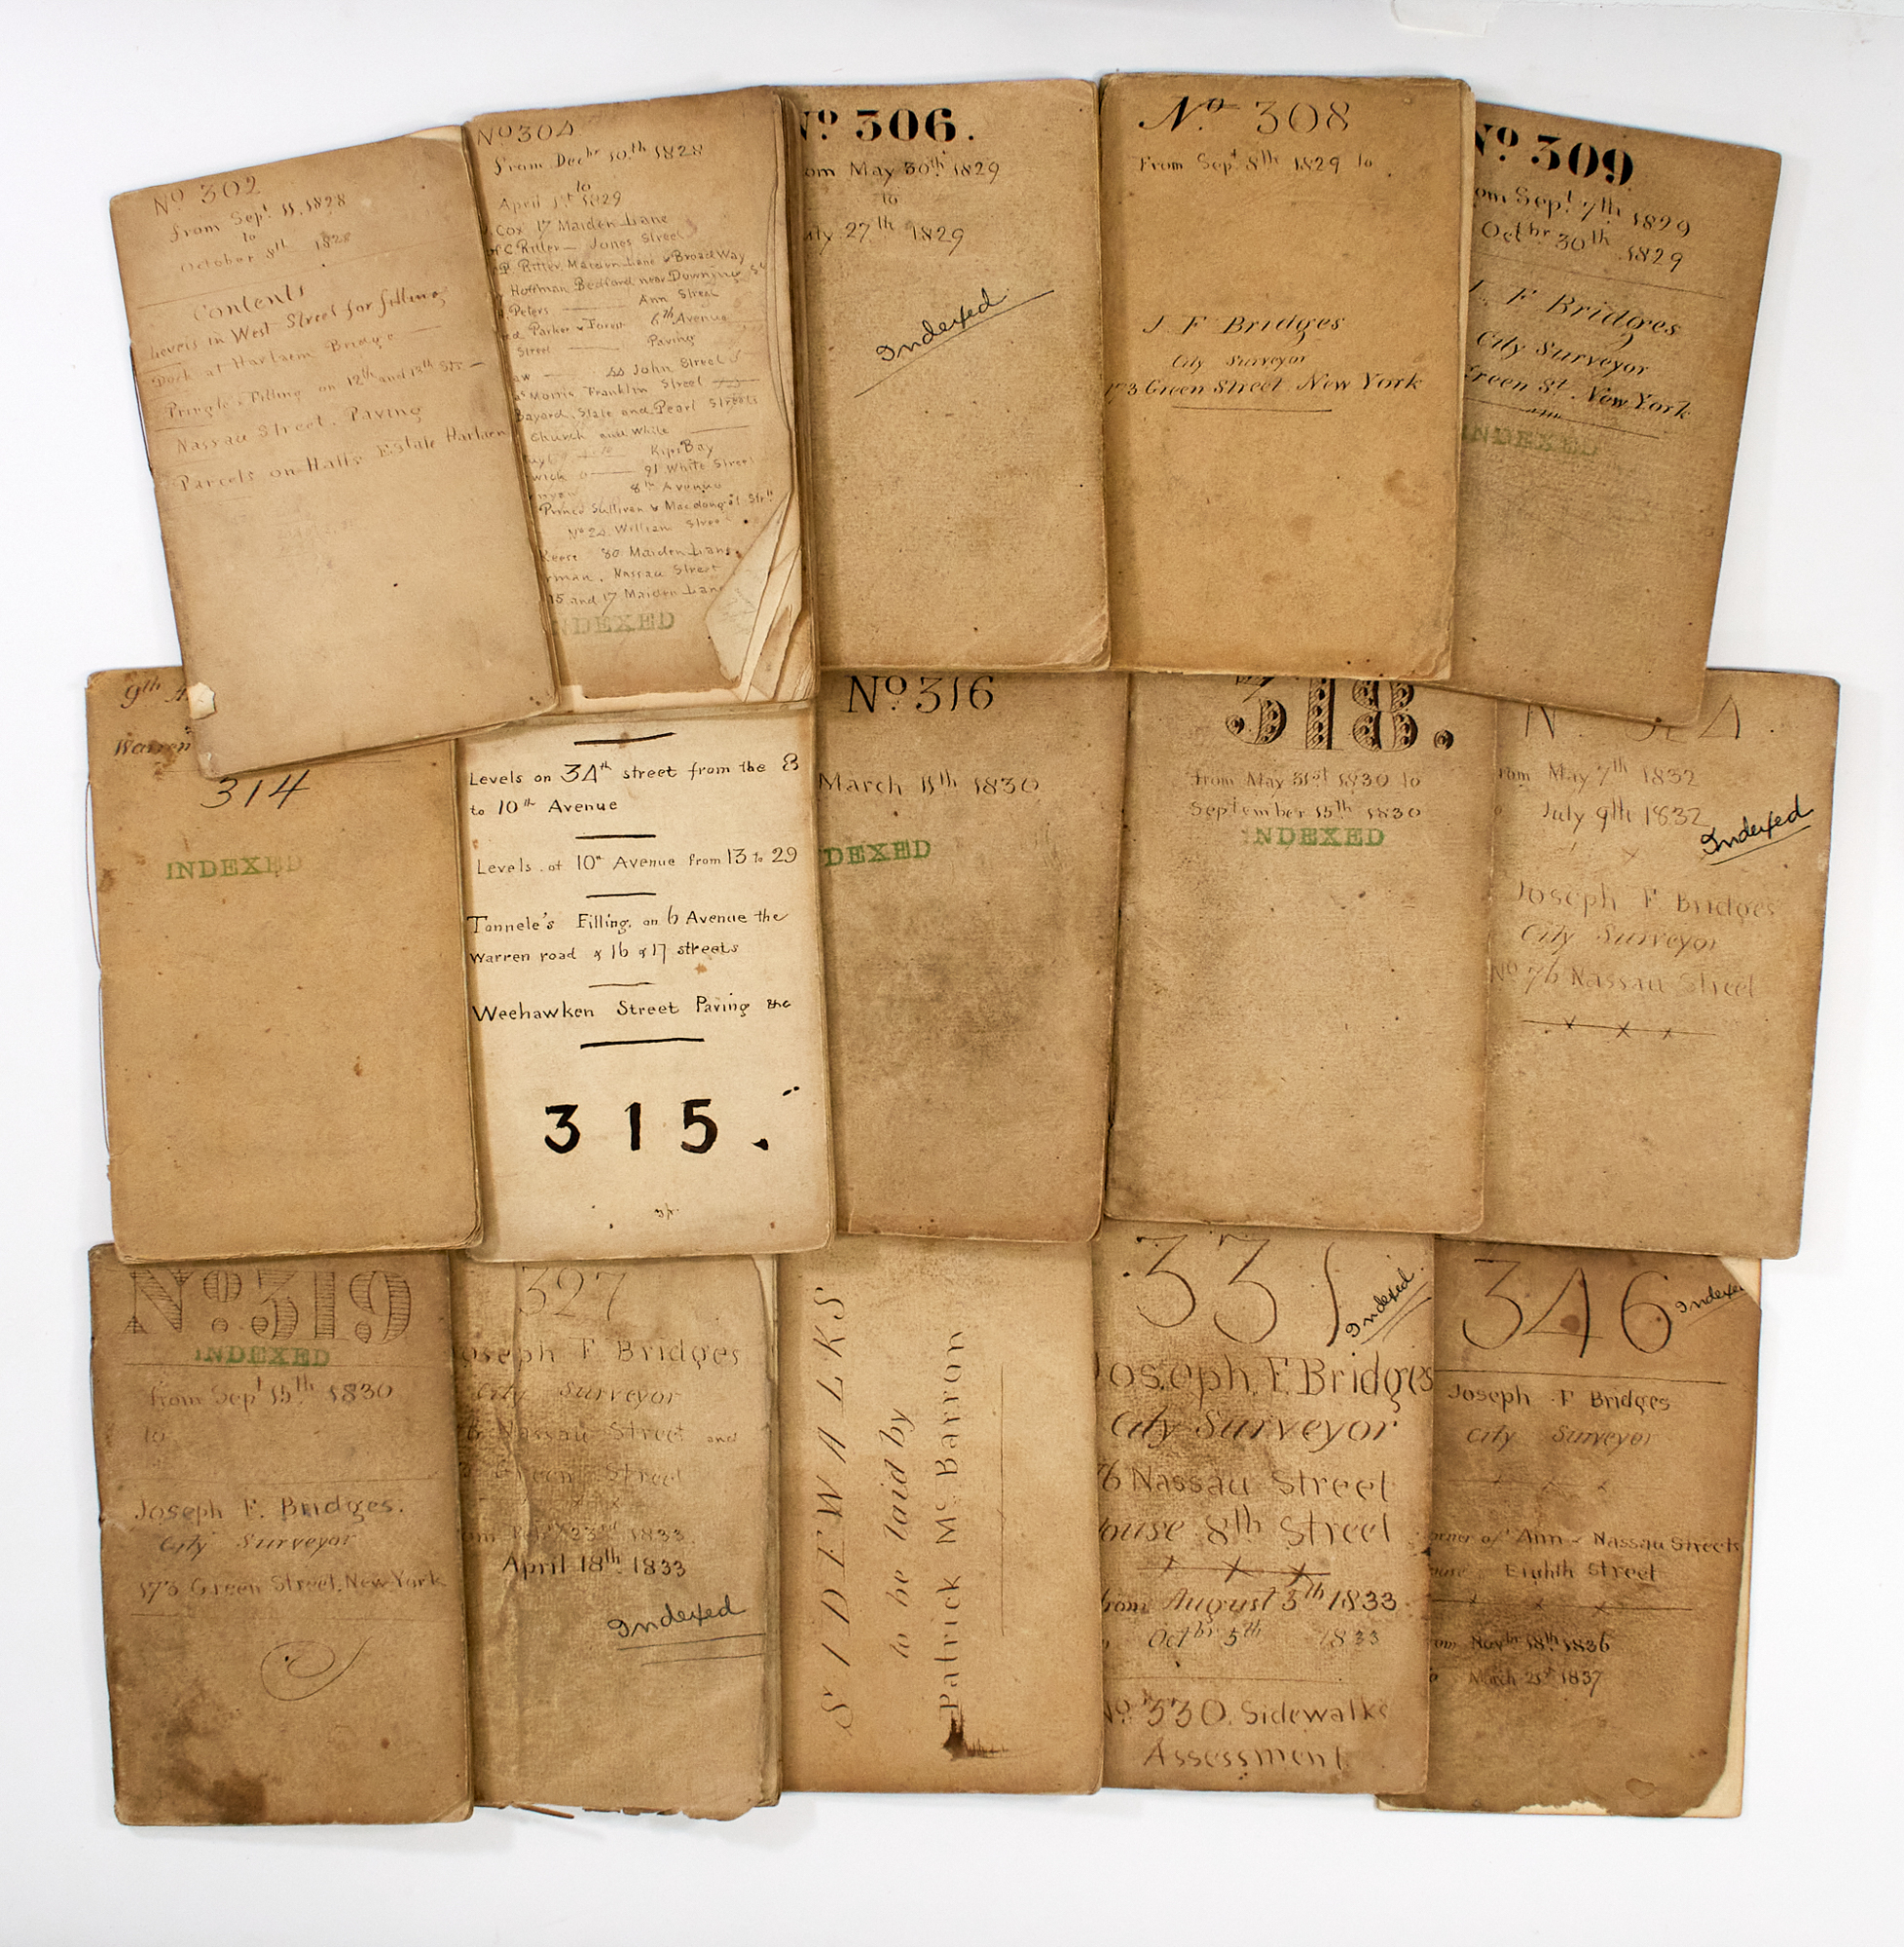 No 302
from Sept. 11. 1828
to
October 8th 1828
Contents
Levels in West Street for filling
Dock at Harlaem Bridge
Pringle Filling on 12th and 13th Sts
Nassau Street. Paving
Parcels on Halls Estate Harlaem
No 304
from Decbr 10.th 1828
to
April 1st 1829
Cox 17 Maiden Lane
C Ritter — Jones Street
P. Ritter Maiden Lane & BroadWay
Hoffman Bedford near Downing St
Peters — Ann Street
Parker & Forest 6th Avenue
Street — Paving
John Street
Morris Franklin Street
Bayard. State and Pearl Streets
Church and White
Kips Bay
91 White Street
8th Avenue
Prince Sullivan & Macdougal Strts
No 22 William Street
Keese 80 Maiden Lane
rman. Nassau Street
15 and 17 Maiden Lane
NDEXED
No 306.
om May 30th 1829
to
uly 27th 1829
Indexed
No 308
From Sept 8th 1829 to
J F Bridges
City Surveyor
173 Green Street. New York
No 309
om Sept 7th 1829
Octbr 30th 1829
J. F Bridges
City Surveyor
Green St. New York
INDEXED
9th A
Warren
314
INDEXED
Levels on 34th street from the 8
to 10th Avenue
Levels of 10th Avenue from 13 to 29
Tonnele's Filling on 6 Avenue the
Warren road & 16 & 17 streets
Weehawken Street Paving &c
315.
No 316
March 11th 1830
DEXED
318.
from May 31st 1830 to
September 15th 1830
INDEXED
rom May 7th 1832
July 9th 1832
Indexed
Joseph F. Bridges
City Surveyor
No 76 Nassau Street
No 319
INDEXED
from Sept 15th 1830
to
Joseph F. Bridges.
City Surveyor
173 Green Street. New York
327
Joseph F. Bridges
City Surveyor
76 Nassau Street and
Green Street
23rd 1833
April 18th 1833
Indexed
SIDEWALKS
to be laid by
Patrick Mc Barron
331
Indexed
Joseph. F. Bridges
City Surveyor
76 Nassau Street
ouse 8th Street
from August 3th 1833
Octbr 5th 1833
No 330. Sidewalks
Assessment
346
Indexed
Joseph F Bridges
City Surveyor
orner of Ann & Nassau Streets
Eighth Street
om Novbr 18th 1836
March 21st 1837